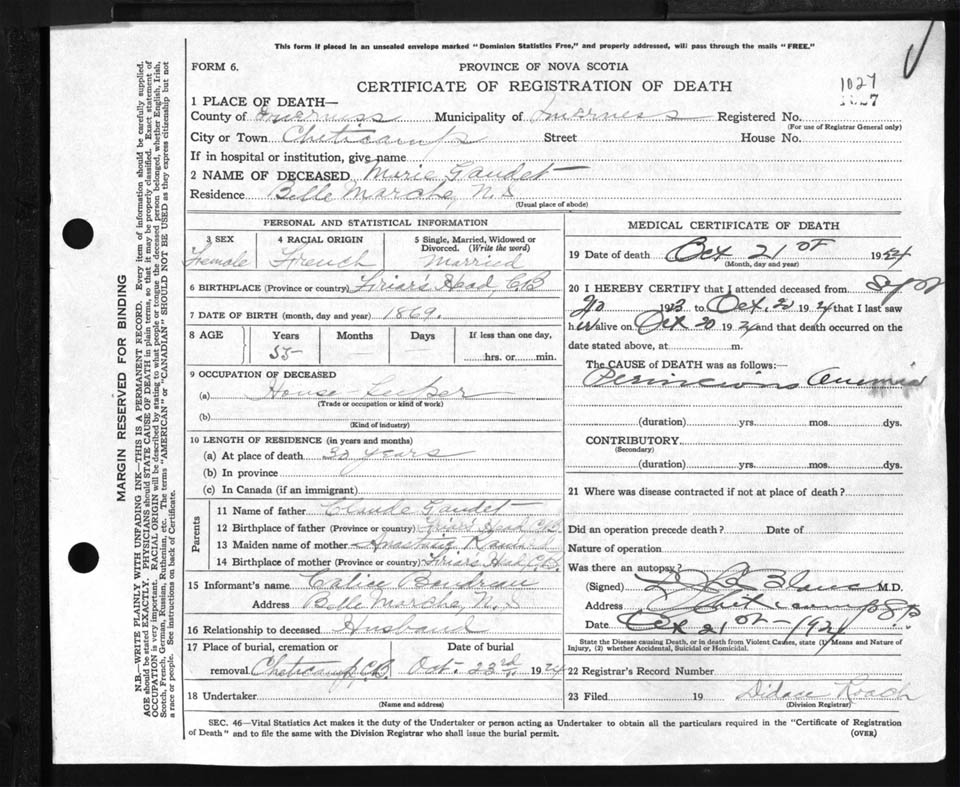 This form if placed in an unsealed envelope marked "Dominion Statistics Free," and properly addressed, will pass through the mails "FREE."
FORM 6.
PROVINCE OF NOVA SCOTIA
CERTIFICATE OF REGISTRATION OF DEATH
1027
1 PLACE OF DEATH—
County of Inverness Municipality of Inverness Registered No.
(For use of Registrar General only)
City or Town Cheticamp Street House No.
If in hospital or institution, give name
2 NAME OF DECEASED Marie Gaudet
Residence Belle Marche, N.S
(Usual place of abode)
PERSONAL AND STATISTICAL INFORMATION
3 SEX 4 RACIAL ORIGIN 5 Single, Married, Widowed or Divorced. (Write the word)
Female French Married
6 BIRTHPLACE (Province or country) Friar's Head, C.B
7 DATE OF BIRTH (month, day and year) 1869.
8 AGE Years Months Days If less than one day,
55 — — hrs. or min.
9 OCCUPATION OF DECEASED
(a) House Keeper
(Trade or occupation or kind of work)
(b)
(Kind of industry)
10 LENGTH OF RESIDENCE (in years and months)
(a) At place of death years
(b) In province
(c) In Canada (if an immigrant)
Parents
11 Name of father Claude Gaudet
12 Birthplace of father (Province or country) Friar's Head C.B.
13 Maiden name of mother
14 Birthplace of mother (Province or country) Friar's Head, C.B.
15 Informant's name Calixe Boudreau
Address Belle Marche, N.S
16 Relationship to deceased Husband
17 Place of burial, cremation or removal. Cheticamp, C.B. Date of burial Oct. 23rd, 1924
18 Undertaker
(Name and address)
MEDICAL CERTIFICATE OF DEATH
19 Date of death Oct 21st 1924
(Month, day and year)
20 I HEREBY CERTIFY that I attended deceased from Sept
1923 to Oct. 1924 that I last saw
her alive on Oct 20 1924 and that death occurred on the
date stated above, at m.
The CAUSE OF DEATH was as follows:
Pernicious Anemia
(duration) yrs. mos. dys.
CONTRIBUTORY
(Secondary)
(duration) yrs. mos. dys.
21 Where was disease contracted if not at place of death?
Did an operation precede death? Date of
Nature of operation
Was there an autopsy?
(Signed) M.D.
Address Cheticamp
Date Oct 21st — 1924
State the Disease causing Death, or in death from Violent Causes, state (1) Means and Nature of
Injury, (2) whether Accidental, Suicidal or Homicidal.
22 Registrar's Record Number
23 Filed 19 Didace Roach
(Division Registrar)
SEC. 46—Vital Statistics Act makes it the duty of the Undertaker or person acting as Undertaker to obtain all the particulars required in the "Certificate of Registration
of Death" and to file the same with the Division Registrar who shall issue the burial permit.
(OVER)
MARGIN RESERVED FOR BINDING
N.B.—WRITE PLAINLY WITH UNFADING INK—THIS IS A PERMANENT RECORD. Every item of information should be carefully supplied.
AGE should be stated EXACTLY. PHYSICIANS should STATE CAUSE OF DEATH in plain terms, so that it may be properly classified. Exact statement of
OCCUPATION is very important. RACIAL ORIGIN will be described by stating to what people or tongue the deceased person belonged, whether English, Irish,
Scotch, French, German, Russian, Ruthenian, etc. The terms "AMERICAN" or "CANADIAN" SHOULD NOT BE USED as they express citizenship but not
a race or people. See instructions on back of Certificate.